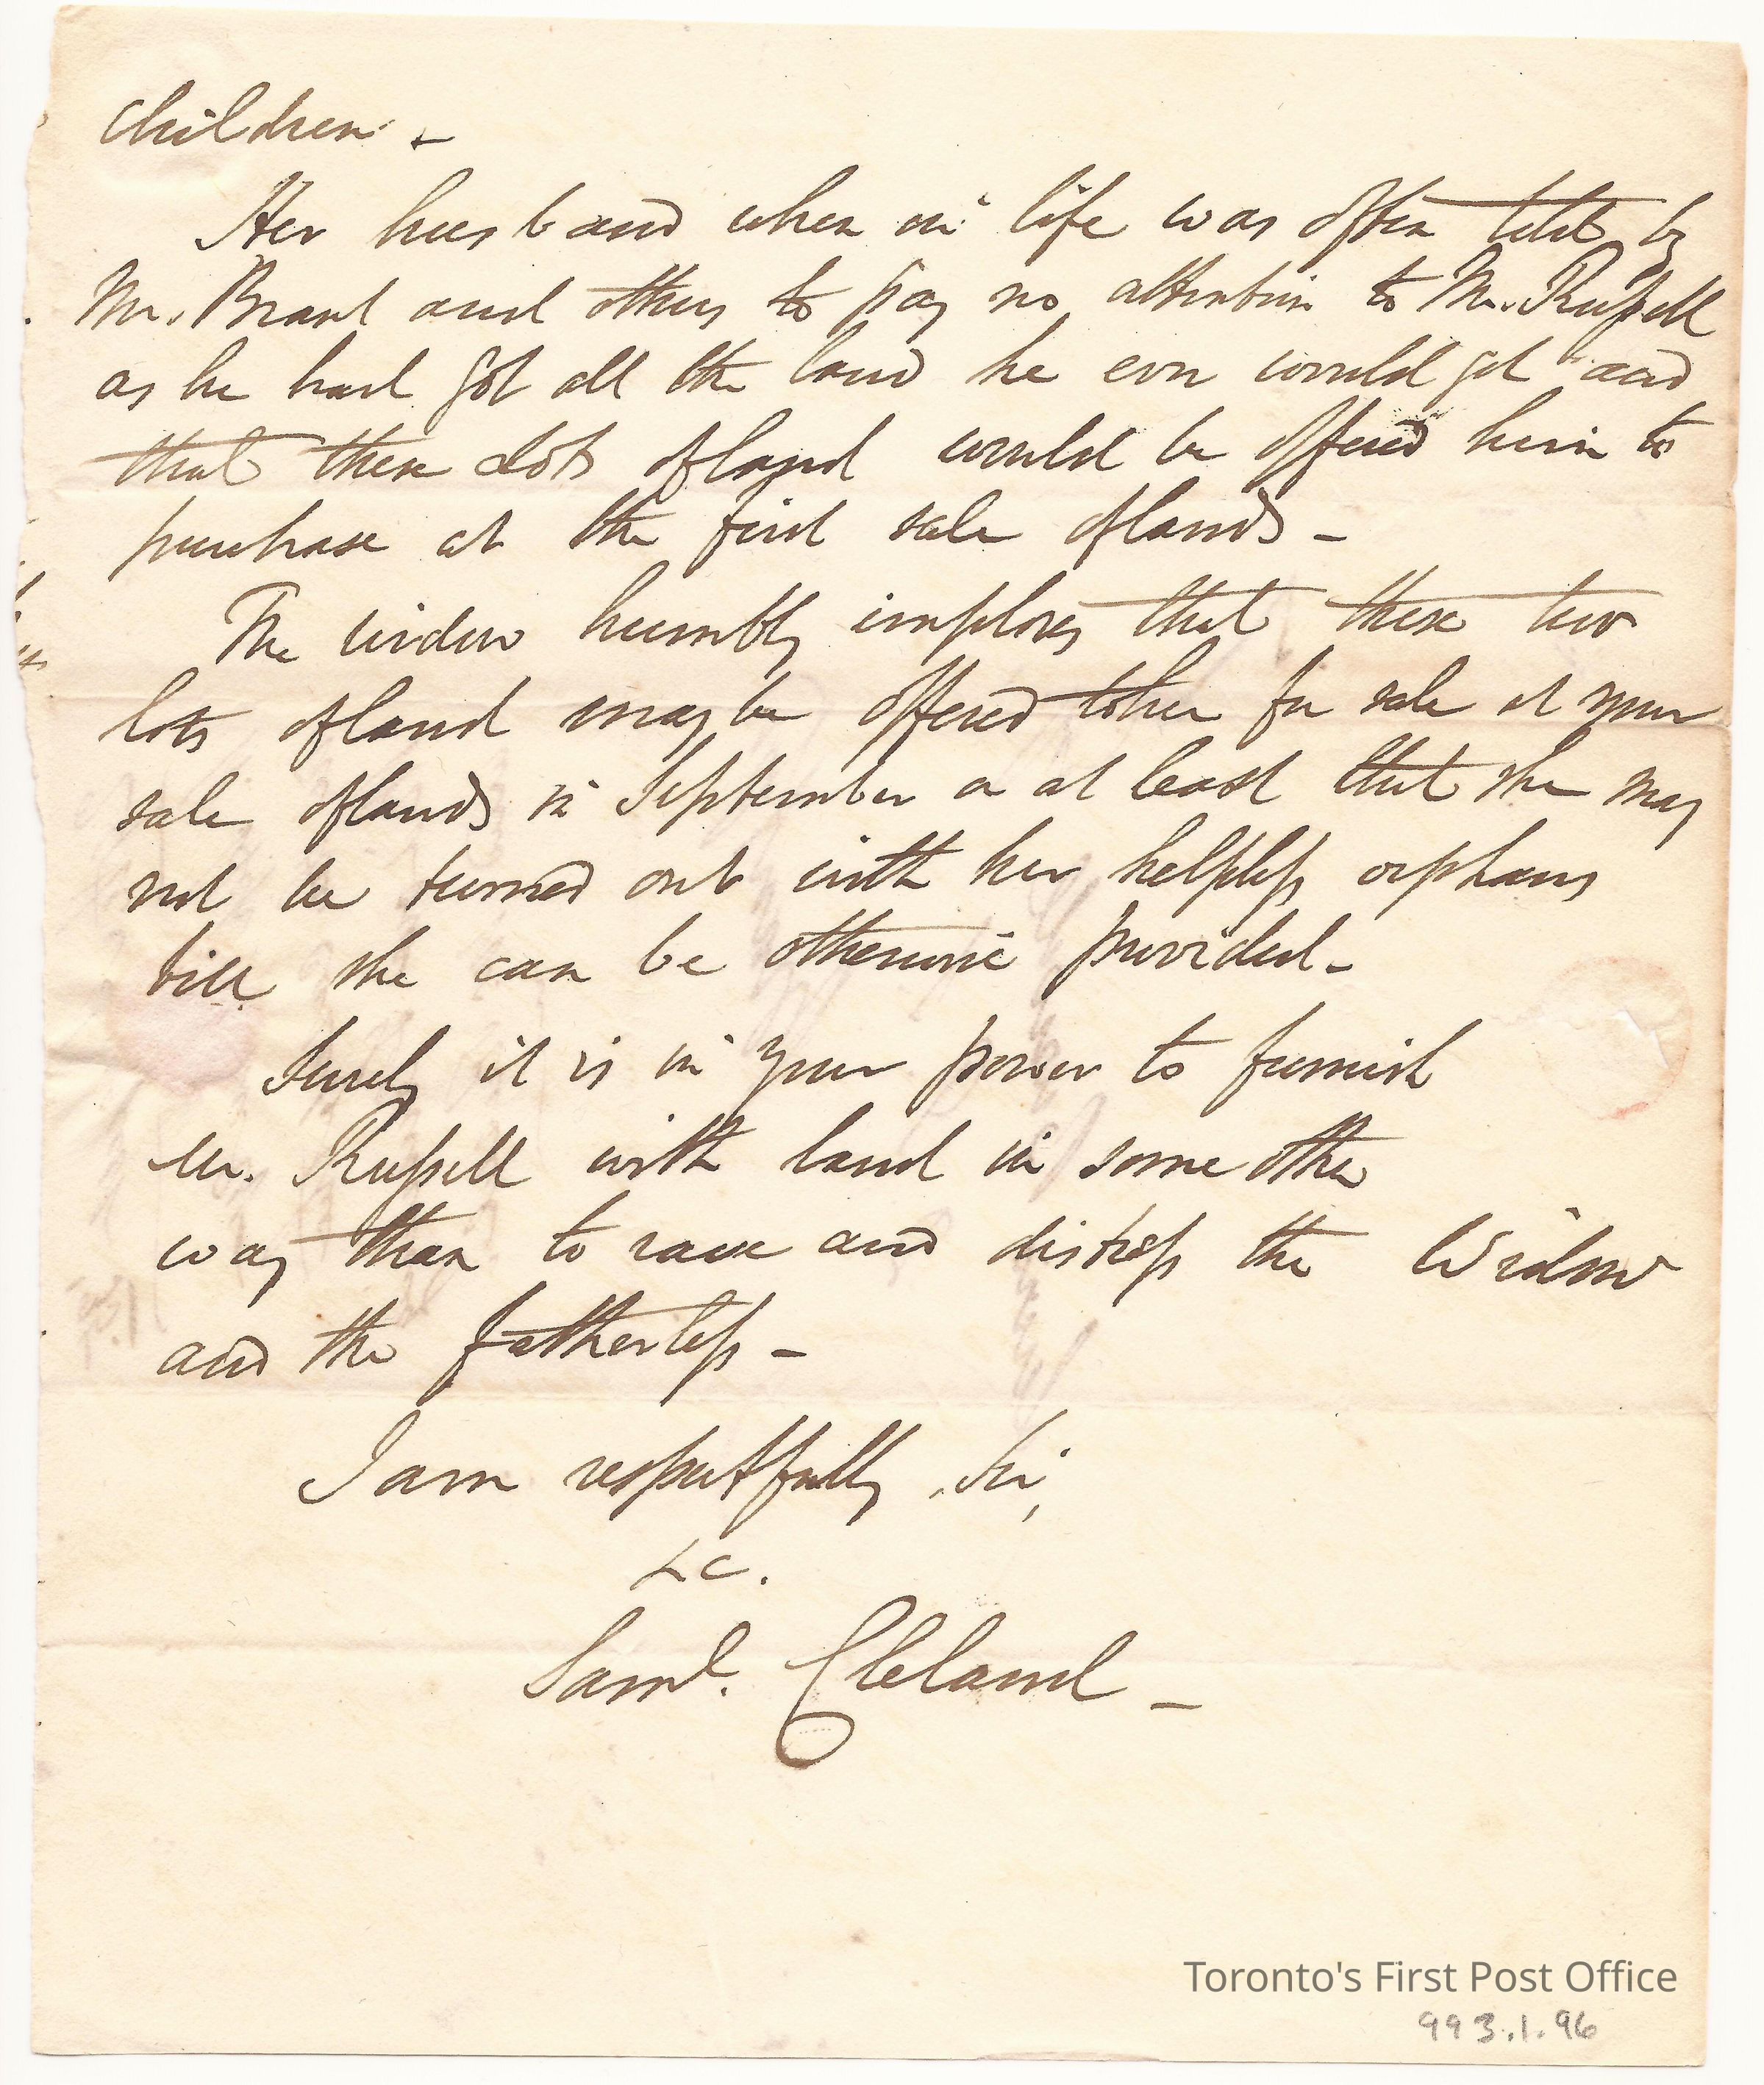 Children. -
Her husband when in life was often told by
Mr. Brant and others to pay no attention to Mr. Russell
as he had got all the land he ever would get and
that these Lots of land would be offered him to
purchase at the first sale of lands -
The widow humbly implores that these two
lots of land may be offered to her for sale at your
sale of lands in September or at least that she may
not be turned out with her helpless orphans
till she can be otherwise provided -
Surely it is in your power to furnish
Mr. Russell with land in some other
way than to vex and distress the Widow
and the fatherless -
I am respectfully, Sir,
&c.
Saml. Cleland -
Toronto's First Post Office
993.1.96